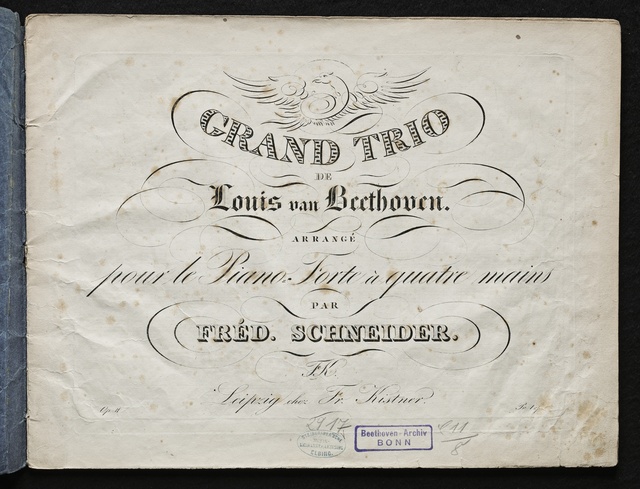 GRAND TRIO
DE
Louis van Beethoven.
ARRANGÉ
pour le Piano-Forte à quatre mains
PAR
FRÉD. SCHNEIDER.
FK
Leipzig chez Fr. Kistner.
Op. 11
Beethoven-Archiv
BONN
C 11
8